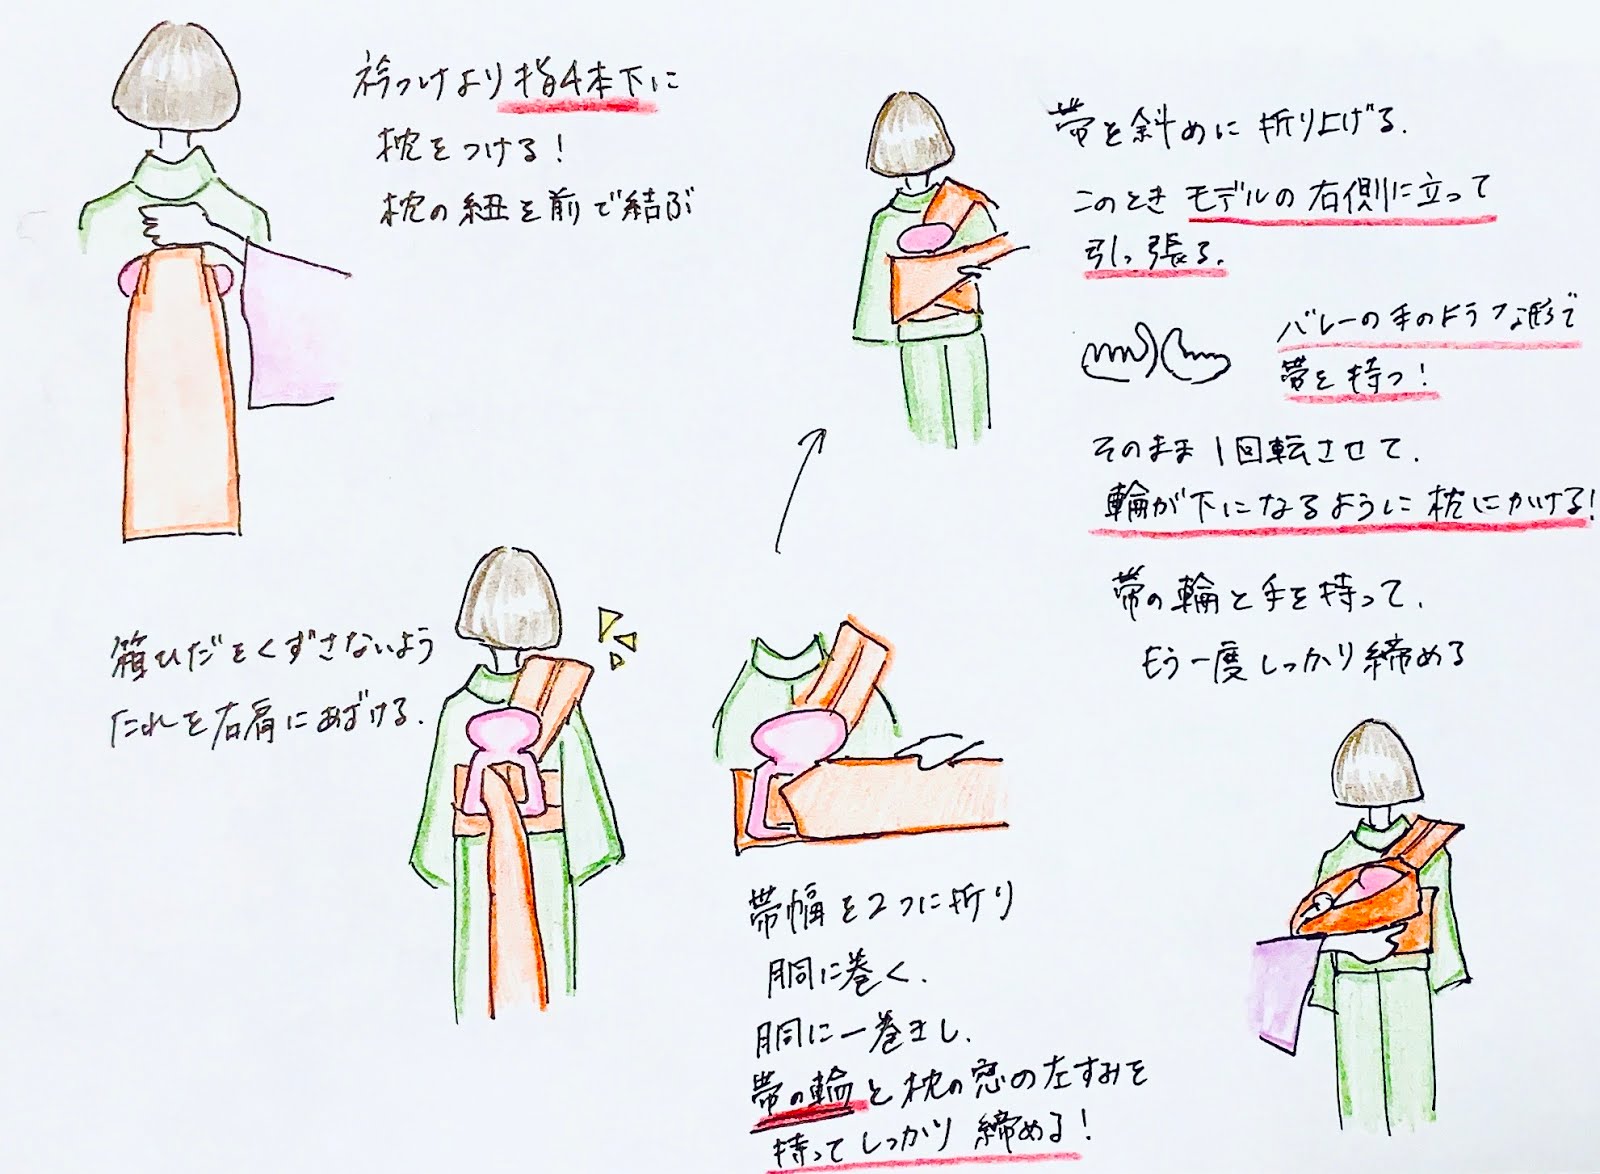 衿つけより指4本下に
枕をつける!
枕の紐を前で結ぶ
箱ひだをくずさないよう
たれを右肩にあずける.
帯幅を2つに折り
胴に巻く.
胴に一巻きし.
帯の輪と枕の窓の左すみを
持ってしっかり締める!
帯を斜めに折り上げる.
このときモデルの右側に立って
引っ張る.
バレーの手のような形で
帯を持つ!
そのまま1回転させて.
輪が下になるように枕にかける!
帯の輪と手を持って.
もう一度しっかり締める